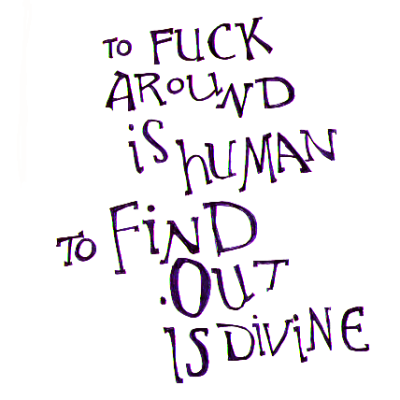 TO FUCK
AROUND
iS hUMAN
TO FiND
.OUT
IS DiViNE